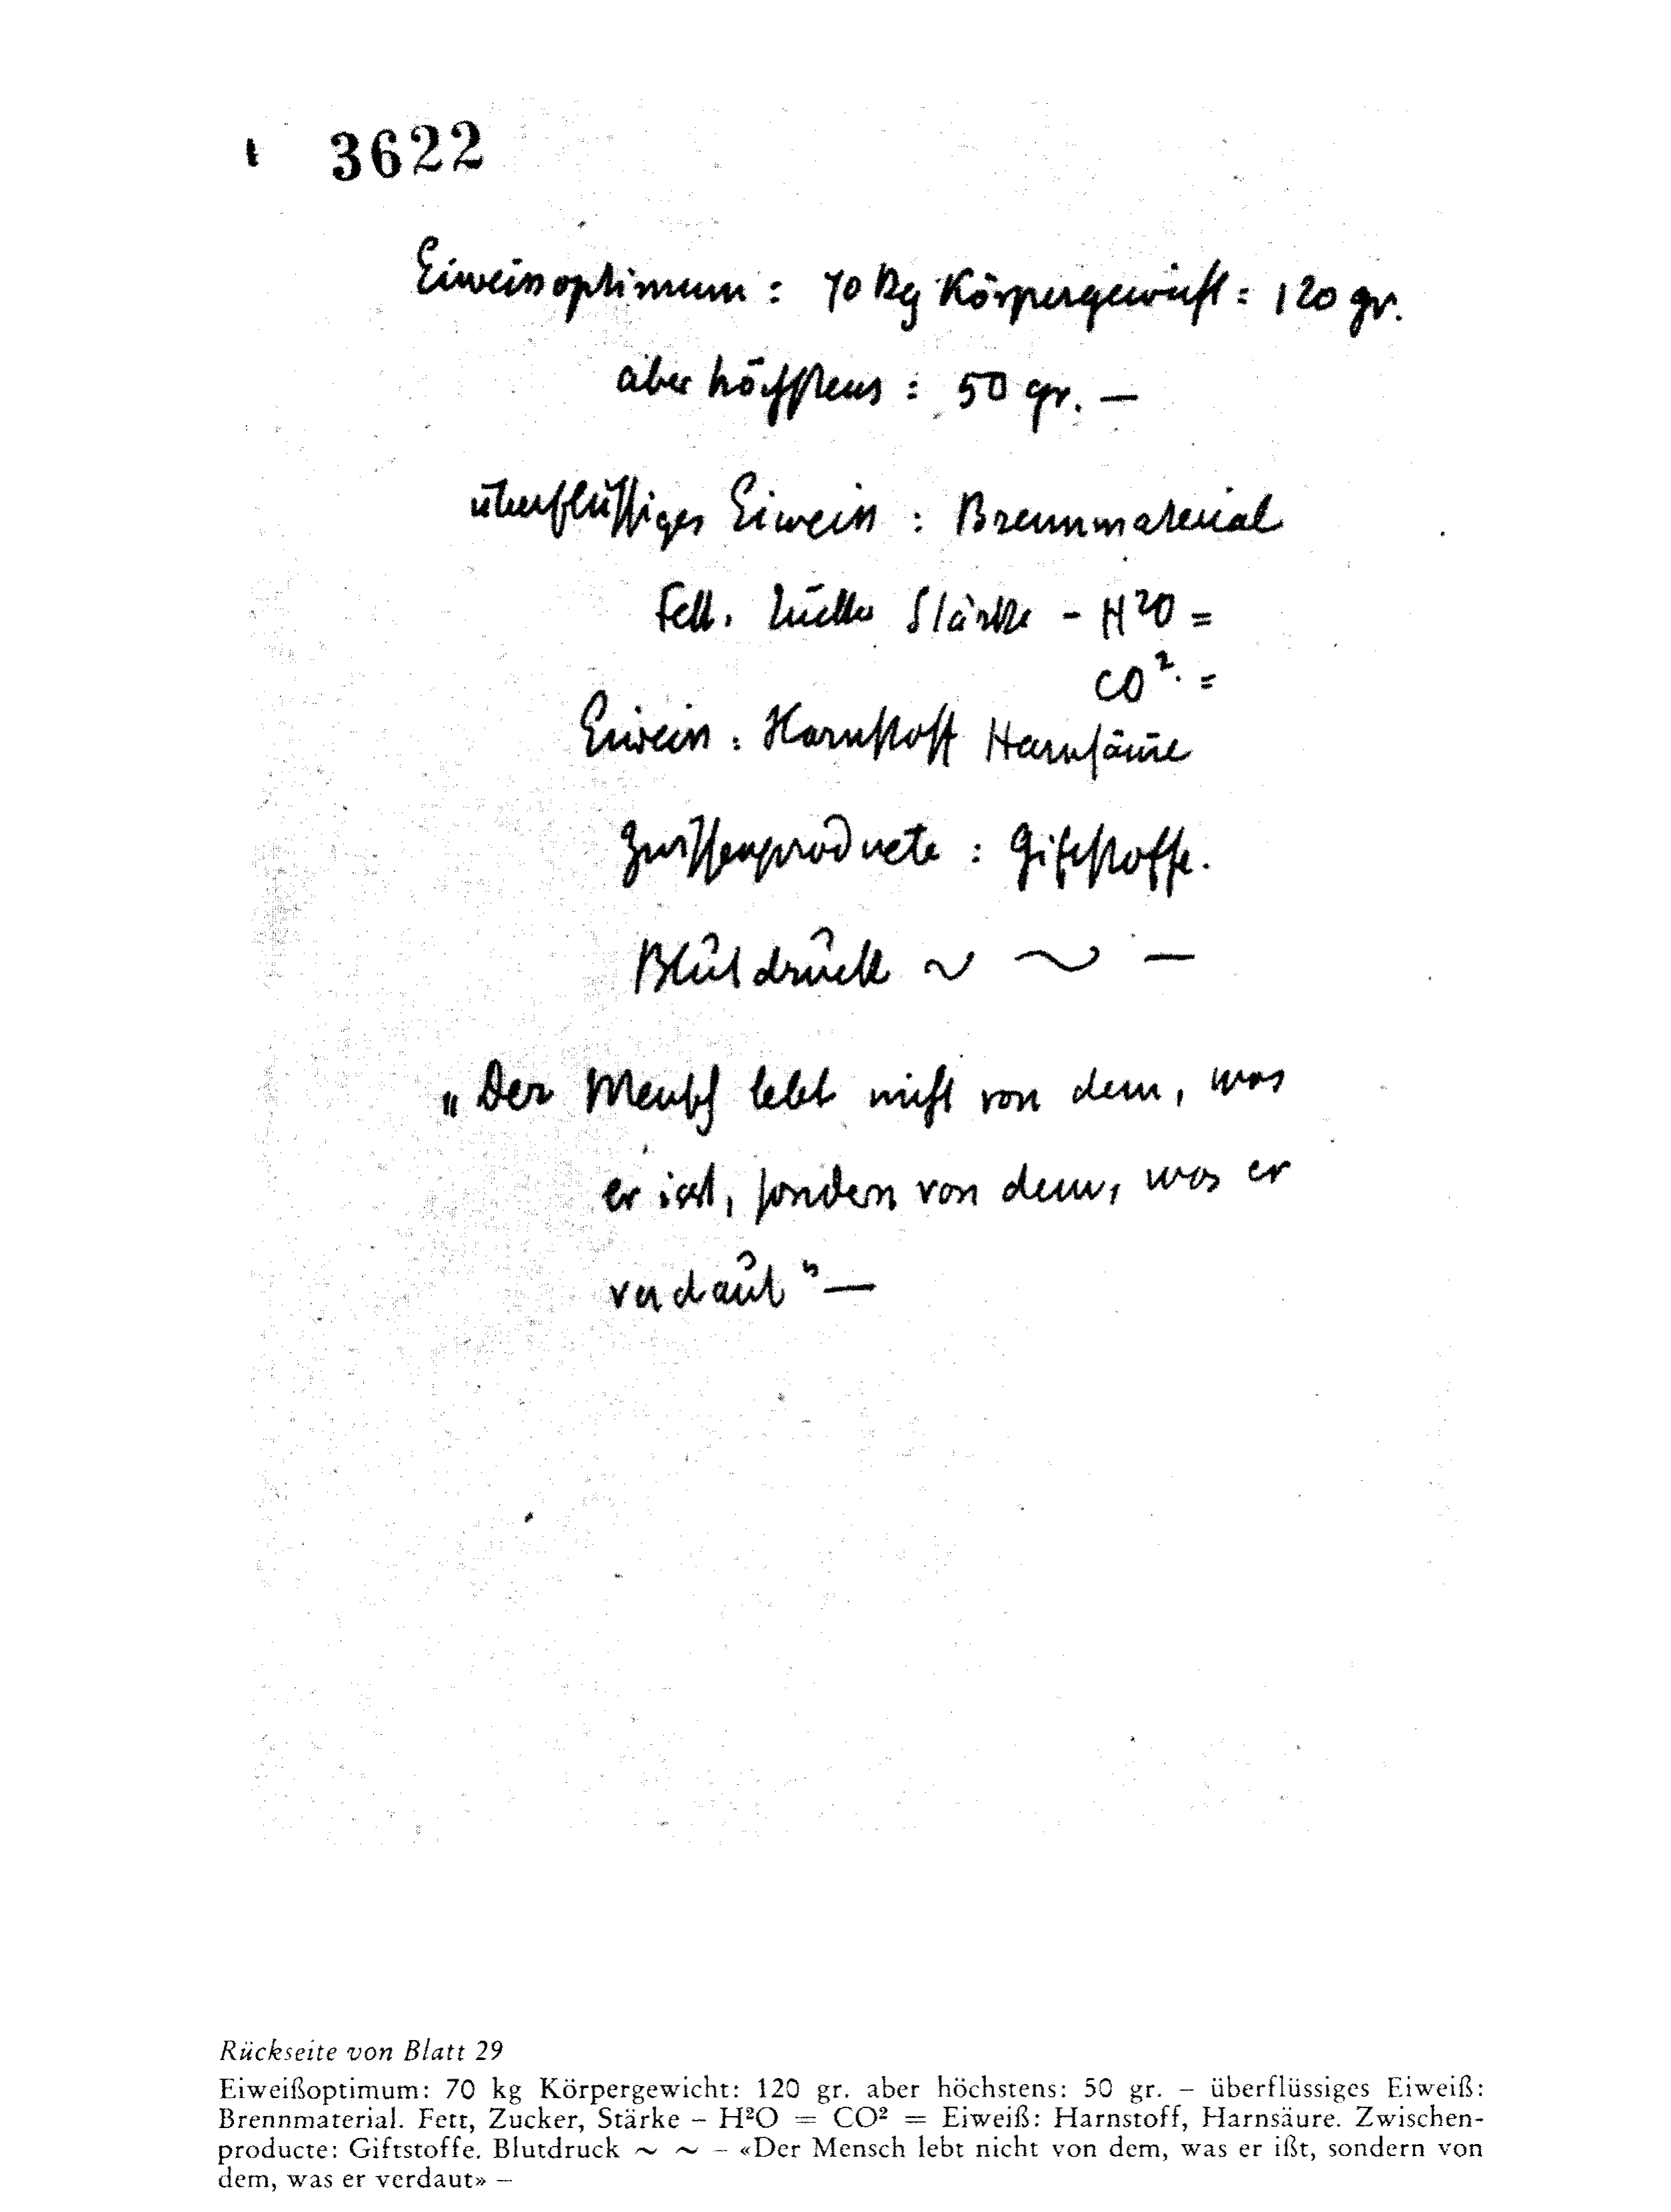 3622
Eiweissoptimum : 70 Kg Körpergewicht : 120 gr.
aber höchstens : 50 gr. –
überflüssiges Eiweiss : Brennmaterial
Fett. Zucker Stärke - H²O =
CO². =
Eiweiss : Harnstoff Harnsäure
Zwischenproducte : Giftstoffe.
Blutdruck ~ ~ –
„Der Mensch lebt nicht von dem, was
er isst, sondern von dem, was er
verdaut" –
Rückseite von Blatt 29
Eiweißoptimum: 70 kg Körpergewicht: 120 gr. aber höchstens: 50 gr. – überflüssiges Eiweiß:
Brennmaterial. Fett, Zucker, Stärke – H²O = CO² = Eiweiß: Harnstoff, Harnsäure. Zwischen-
producte: Giftstoffe. Blutdruck ~ ~ – «Der Mensch lebt nicht von dem, was er ißt, sondern von
dem, was er verdaut» –